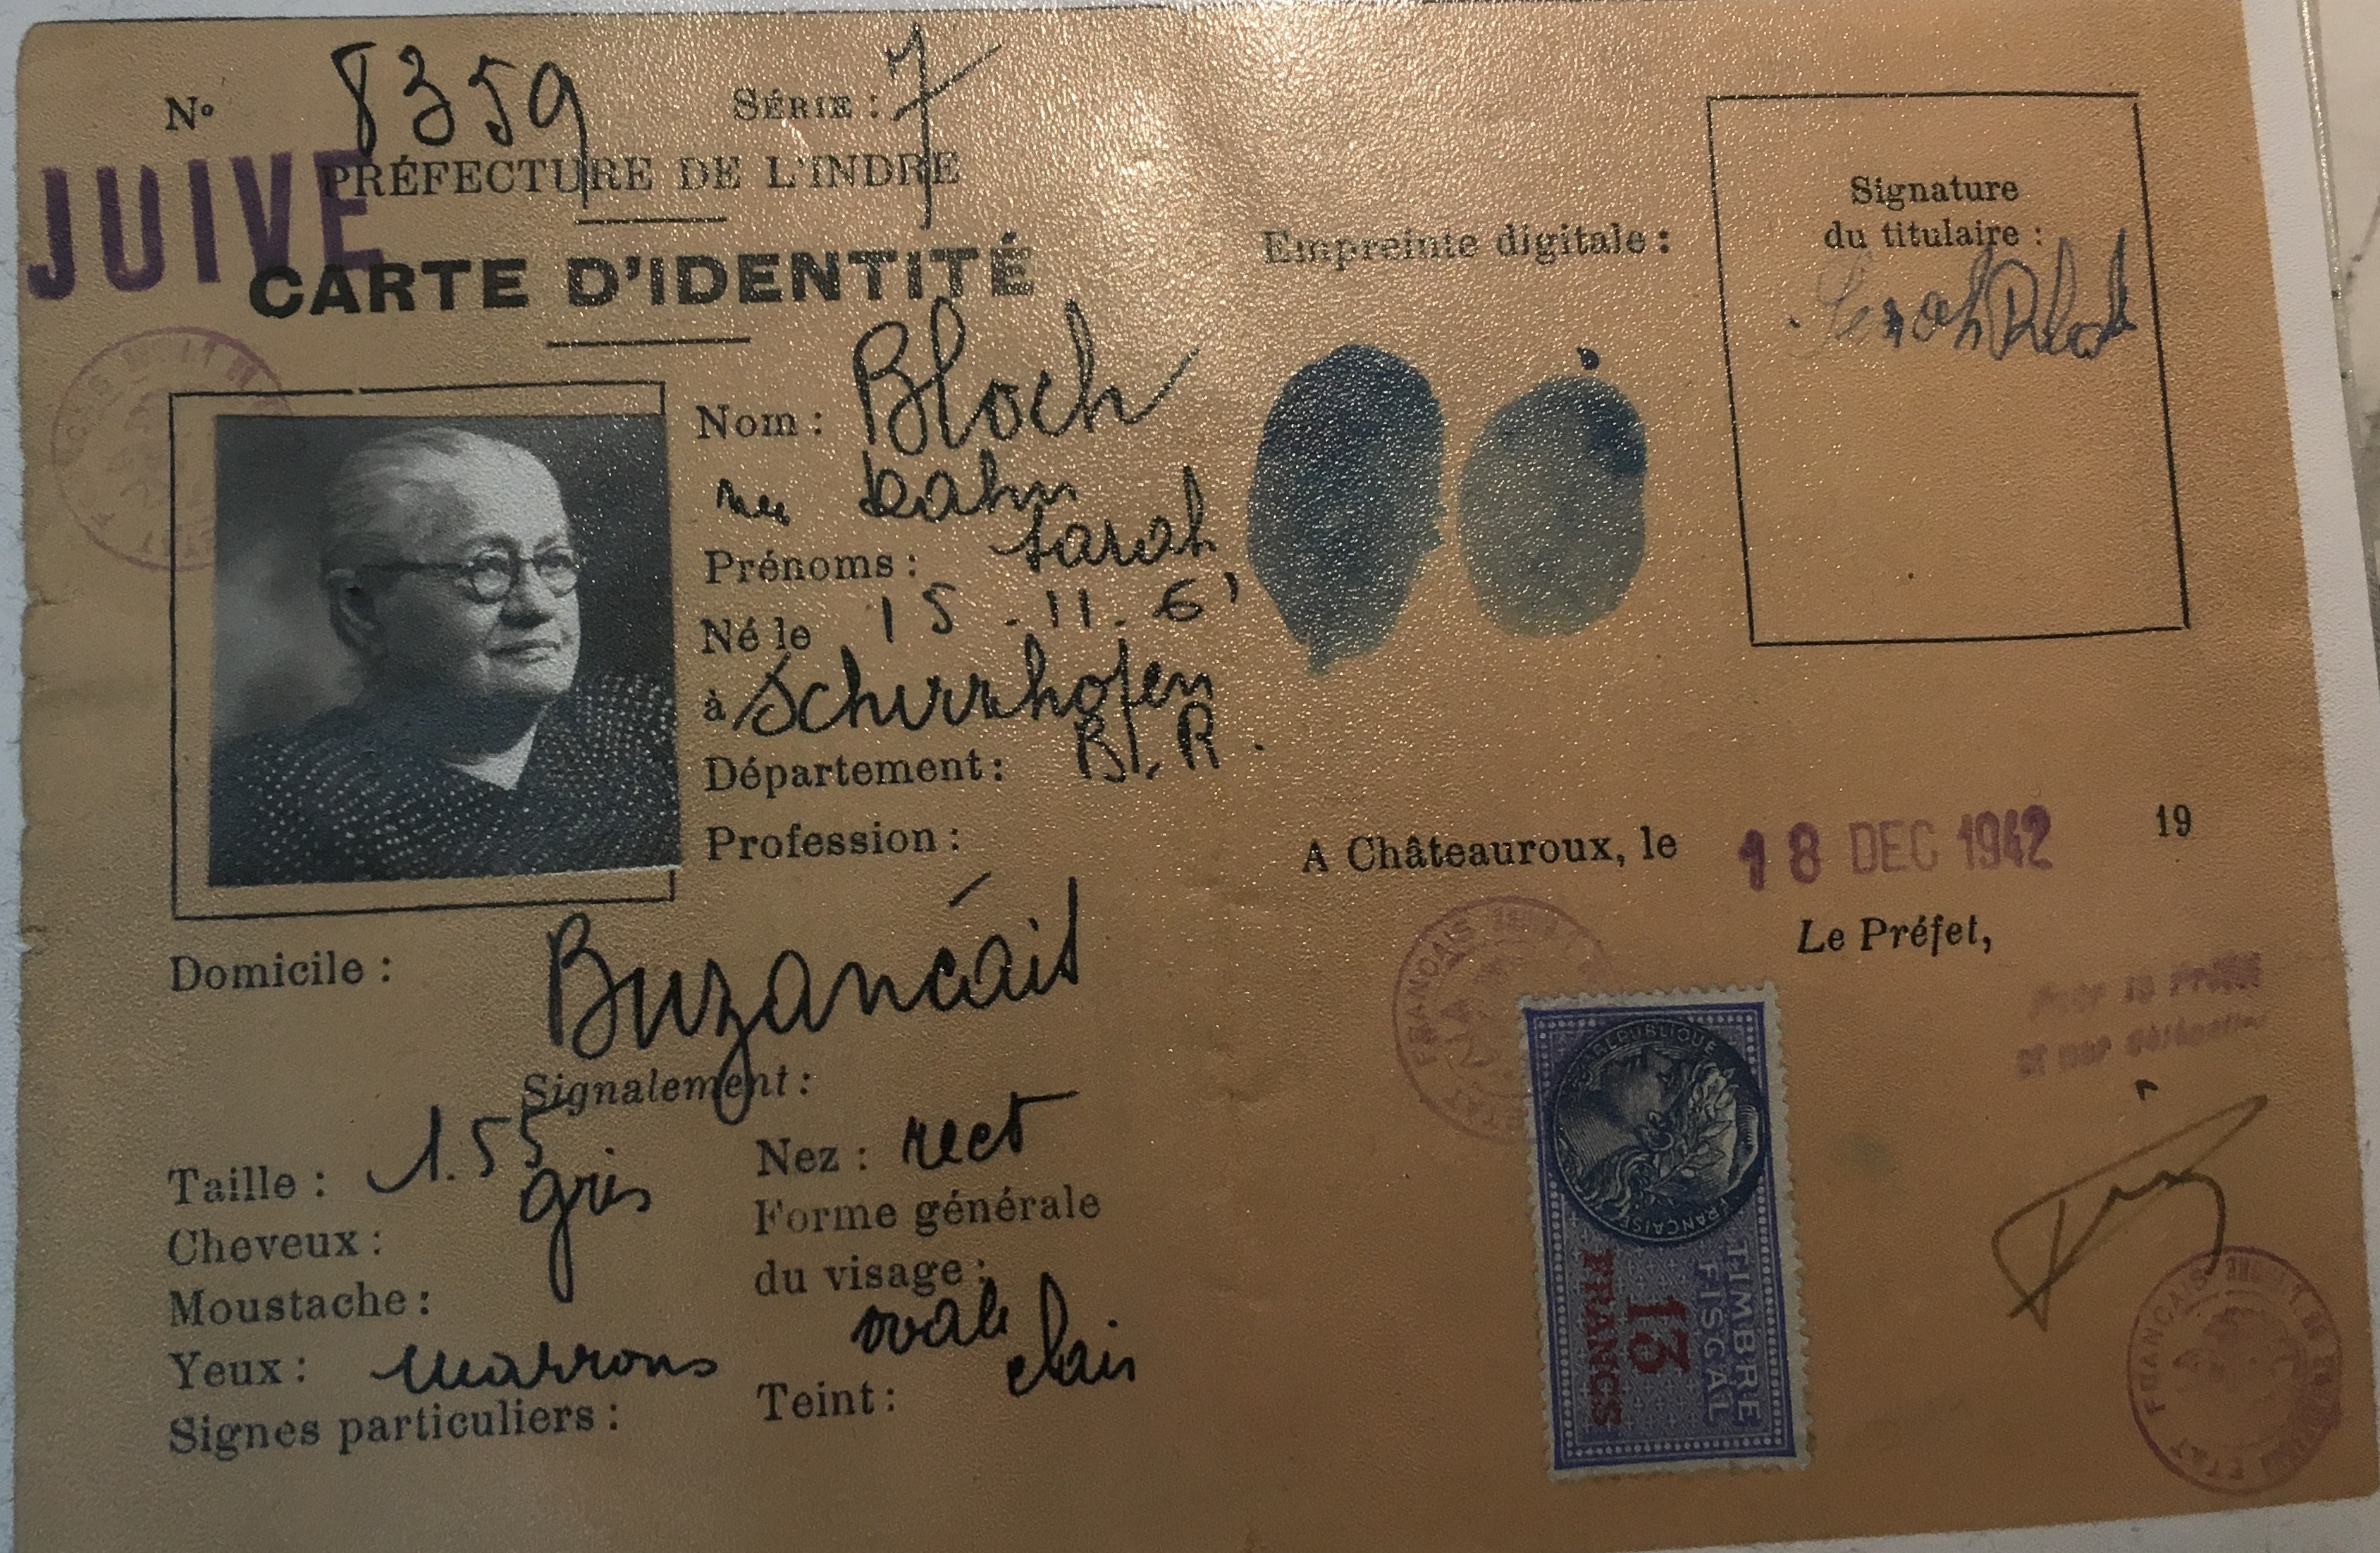 N° 8359 SÉRIE : 7
JUIVE
PRÉFECTURE DE L'INDRE
CARTE D'IDENTITÉ
Nom : Bloch
née Kahn
Prénoms : Sarah
Né le 15.11.61
à Schirrhofen
Département : B.R.
Profession :
Domicile : Buzançais
Signalement :
Taille : 1.55
Cheveux : gris
Moustache :
Yeux : marrons
Signes particuliers :
Nez : rect
Forme générale
du visage : ovale
Teint : clair
Empreinte digitale :
Signature
du titulaire :
Sarah Bloch
A Châteauroux, le 18 DEC 1942 19
Le Préfet,
FRANÇAIS
ETAT
RÉPUBLIQUE
FRANÇAISE
TIMBRE
FISCAL
13
FRANCS
FRANÇAIS
ETAT